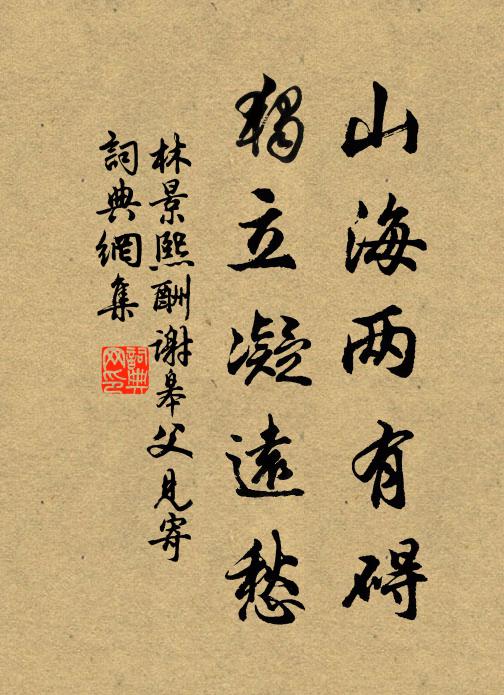 山海两有碍
獨立凝遠愁
林景熙酬谢皋父見寄
詞典網集
詞典网印